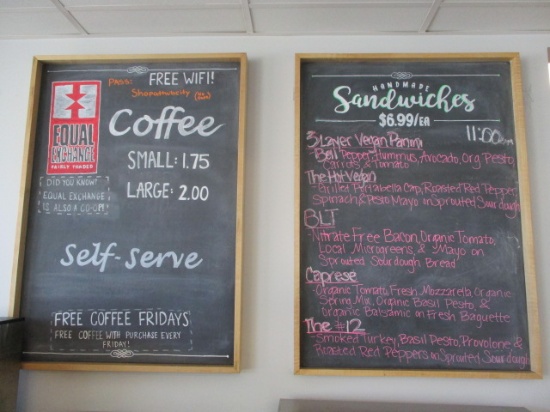 PASS: FREE WIFI!
EQUAL
EXCHANGE
FAIRLY TRADED
Coffee
SMALL: 1.75
LARGE: 2.00
DID YOU KNOW?
EQUAL EXCHANGE
IS ALSO A CO-OP!
Self-Serve
FREE COFFEE FRIDAYS
FREE COFFEE WITH PURCHASE EVERY
FRIDAY!
HANDMADE
Sandwiches
$6.99/EA
11:00
3 Layer Vegan Panini
-Bell Pepper, Hummus, Avocado, Org. Pesto,
& Tomato
The Hot Vegan
-Grilled Portabella Cap, Roasted Red Pepper,
Spinach & Pesto Mayo on Sprouted Sourdough
BLT
-Nitrate Free Bacon, Organic Tomato,
Local Microgreens, & Mayo on
Sprouted Sourdough Bread
Caprese
-Organic Tomato, Fresh Mozzarella, Organic
Spring Mix, Organic Basil Pesto &
Organic Balsamic on Fresh Baguette
The #12
-Smoked Turkey, Basil Pesto, Provolone &
Roasted Red Peppers on Sprouted Sourdough